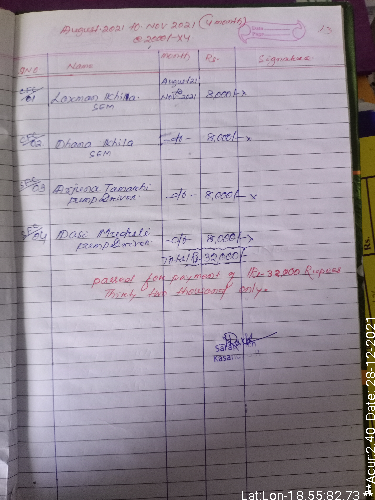 August-2021 to Nov 2021 (4 month)
@ 2000/-X4
13
S.No Name month Rs. Signature
01 Laxman Khila August 21 to Nov 2021 8,000/- x
SEM
02 Dhana Khila -do- 8,000/- x
SEM
03 -do- 8,000/- x
pump Driver
04 -do- 8,000/- x
pump Driver
Total 32,000/-
passed for payment of Rs- 32,000 Rupees
Thirty two thousand only
Kasai
Lat:Lon-18.55:82.73
Acur:2.40 Date: 28-12-2021